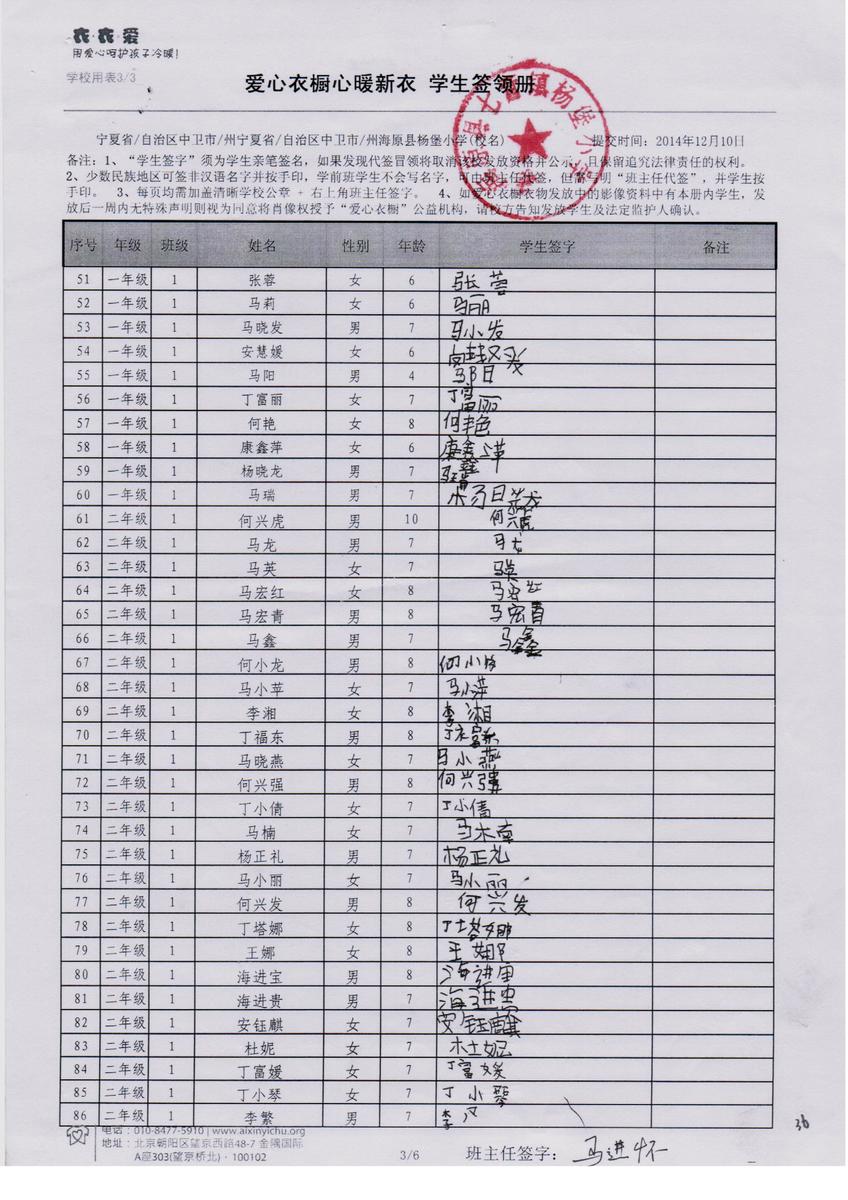 衣·衣·爱
用爱心呵护孩子冷暖!
学校用表3/3
爱心衣橱心暖新衣 学生签领册
宁夏省/自治区中卫市/州宁夏省/自治区中卫市/州海原县杨堡小学(校名) 提交时间：2014年12月10日
备注：1、“学生签字”须为学生亲笔签名，如果发现代签冒领将取消该校发放资格并公示，且保留追究法律责任的权利。
2、少数民族地区可签非汉语名字并按手印，学前班学生不会写名字，可由班主任代签，但需写明“班主任代签”，并学生按
手印。 3、每页均需加盖清晰学校公章 + 右上角班主任签字。 4、如爱心衣橱衣物发放中的影像资料中有本册内学生，发
放后一周内无特殊声明则视为同意将肖像权授予“爱心衣橱”公益机构，请校方告知发放学生及法定监护人确认。
序号 年级 班级 姓名 性别 年龄 学生签字 备注
51 一年级 1 张蓉 女 6 张蓉
52 一年级 1 马莉 女 6 马丽
53 一年级 1 马晓发 男 7 马小发
54 一年级 1 安慧媛 女 6
55 一年级 1 马阳 男 4 马阳
56 一年级 1 丁富丽 女 7 丁富丽
57 一年级 1 何艳 女 8 何艳
58 一年级 1 康鑫萍 女 6 康鑫萍
59 一年级 1 杨晓龙 男 7
60 一年级 1 马瑞 男 7
61 二年级 1 何兴虎 男 10 何兴虎
62 二年级 1 马龙 男 7 马龙
63 二年级 1 马英 女 7 马英
64 二年级 1 马宏红 女 8 马宏红
65 二年级 1 马宏青 男 8 马宏青
66 二年级 1 马鑫 男 7 马鑫
67 二年级 1 何小龙 男 8 何小龙
68 二年级 1 马小苹 女 7 马小萍
69 二年级 1 李湘 女 8 李湘
70 二年级 1 丁福东 男 8
71 二年级 1 马晓燕 女 7 马小燕
72 二年级 1 何兴强 男 8 何兴强
73 二年级 1 丁小倩 女 7 丁小倩
74 二年级 1 马楠 女 7 马楠
75 二年级 1 杨正礼 男 7 杨正礼
76 二年级 1 马小丽 女 7 马小丽
77 二年级 1 何兴发 男 8 何兴发
78 二年级 1 丁塔娜 女 8 丁塔娜
79 二年级 1 王娜 女 8 王娜
80 二年级 1 海进宝 男 8 海进宝
81 二年级 1 海进贵 男 7 海进贵
82 二年级 1 安钰麒 女 7 安钰麒
83 二年级 1 杜妮 女 7 杜妮
84 二年级 1 丁富媛 女 7 丁富媛
85 二年级 1 丁小琴 女 7 丁小琴
86 二年级 1 李繁 男 7 李
电话：010-8477-5910 | www.aixinyichu.org
地址：北京朝阳区望京西路48-7 金隅国际
A座303(望京桥北)·100102
3/6
班主任签字：马进怀
36